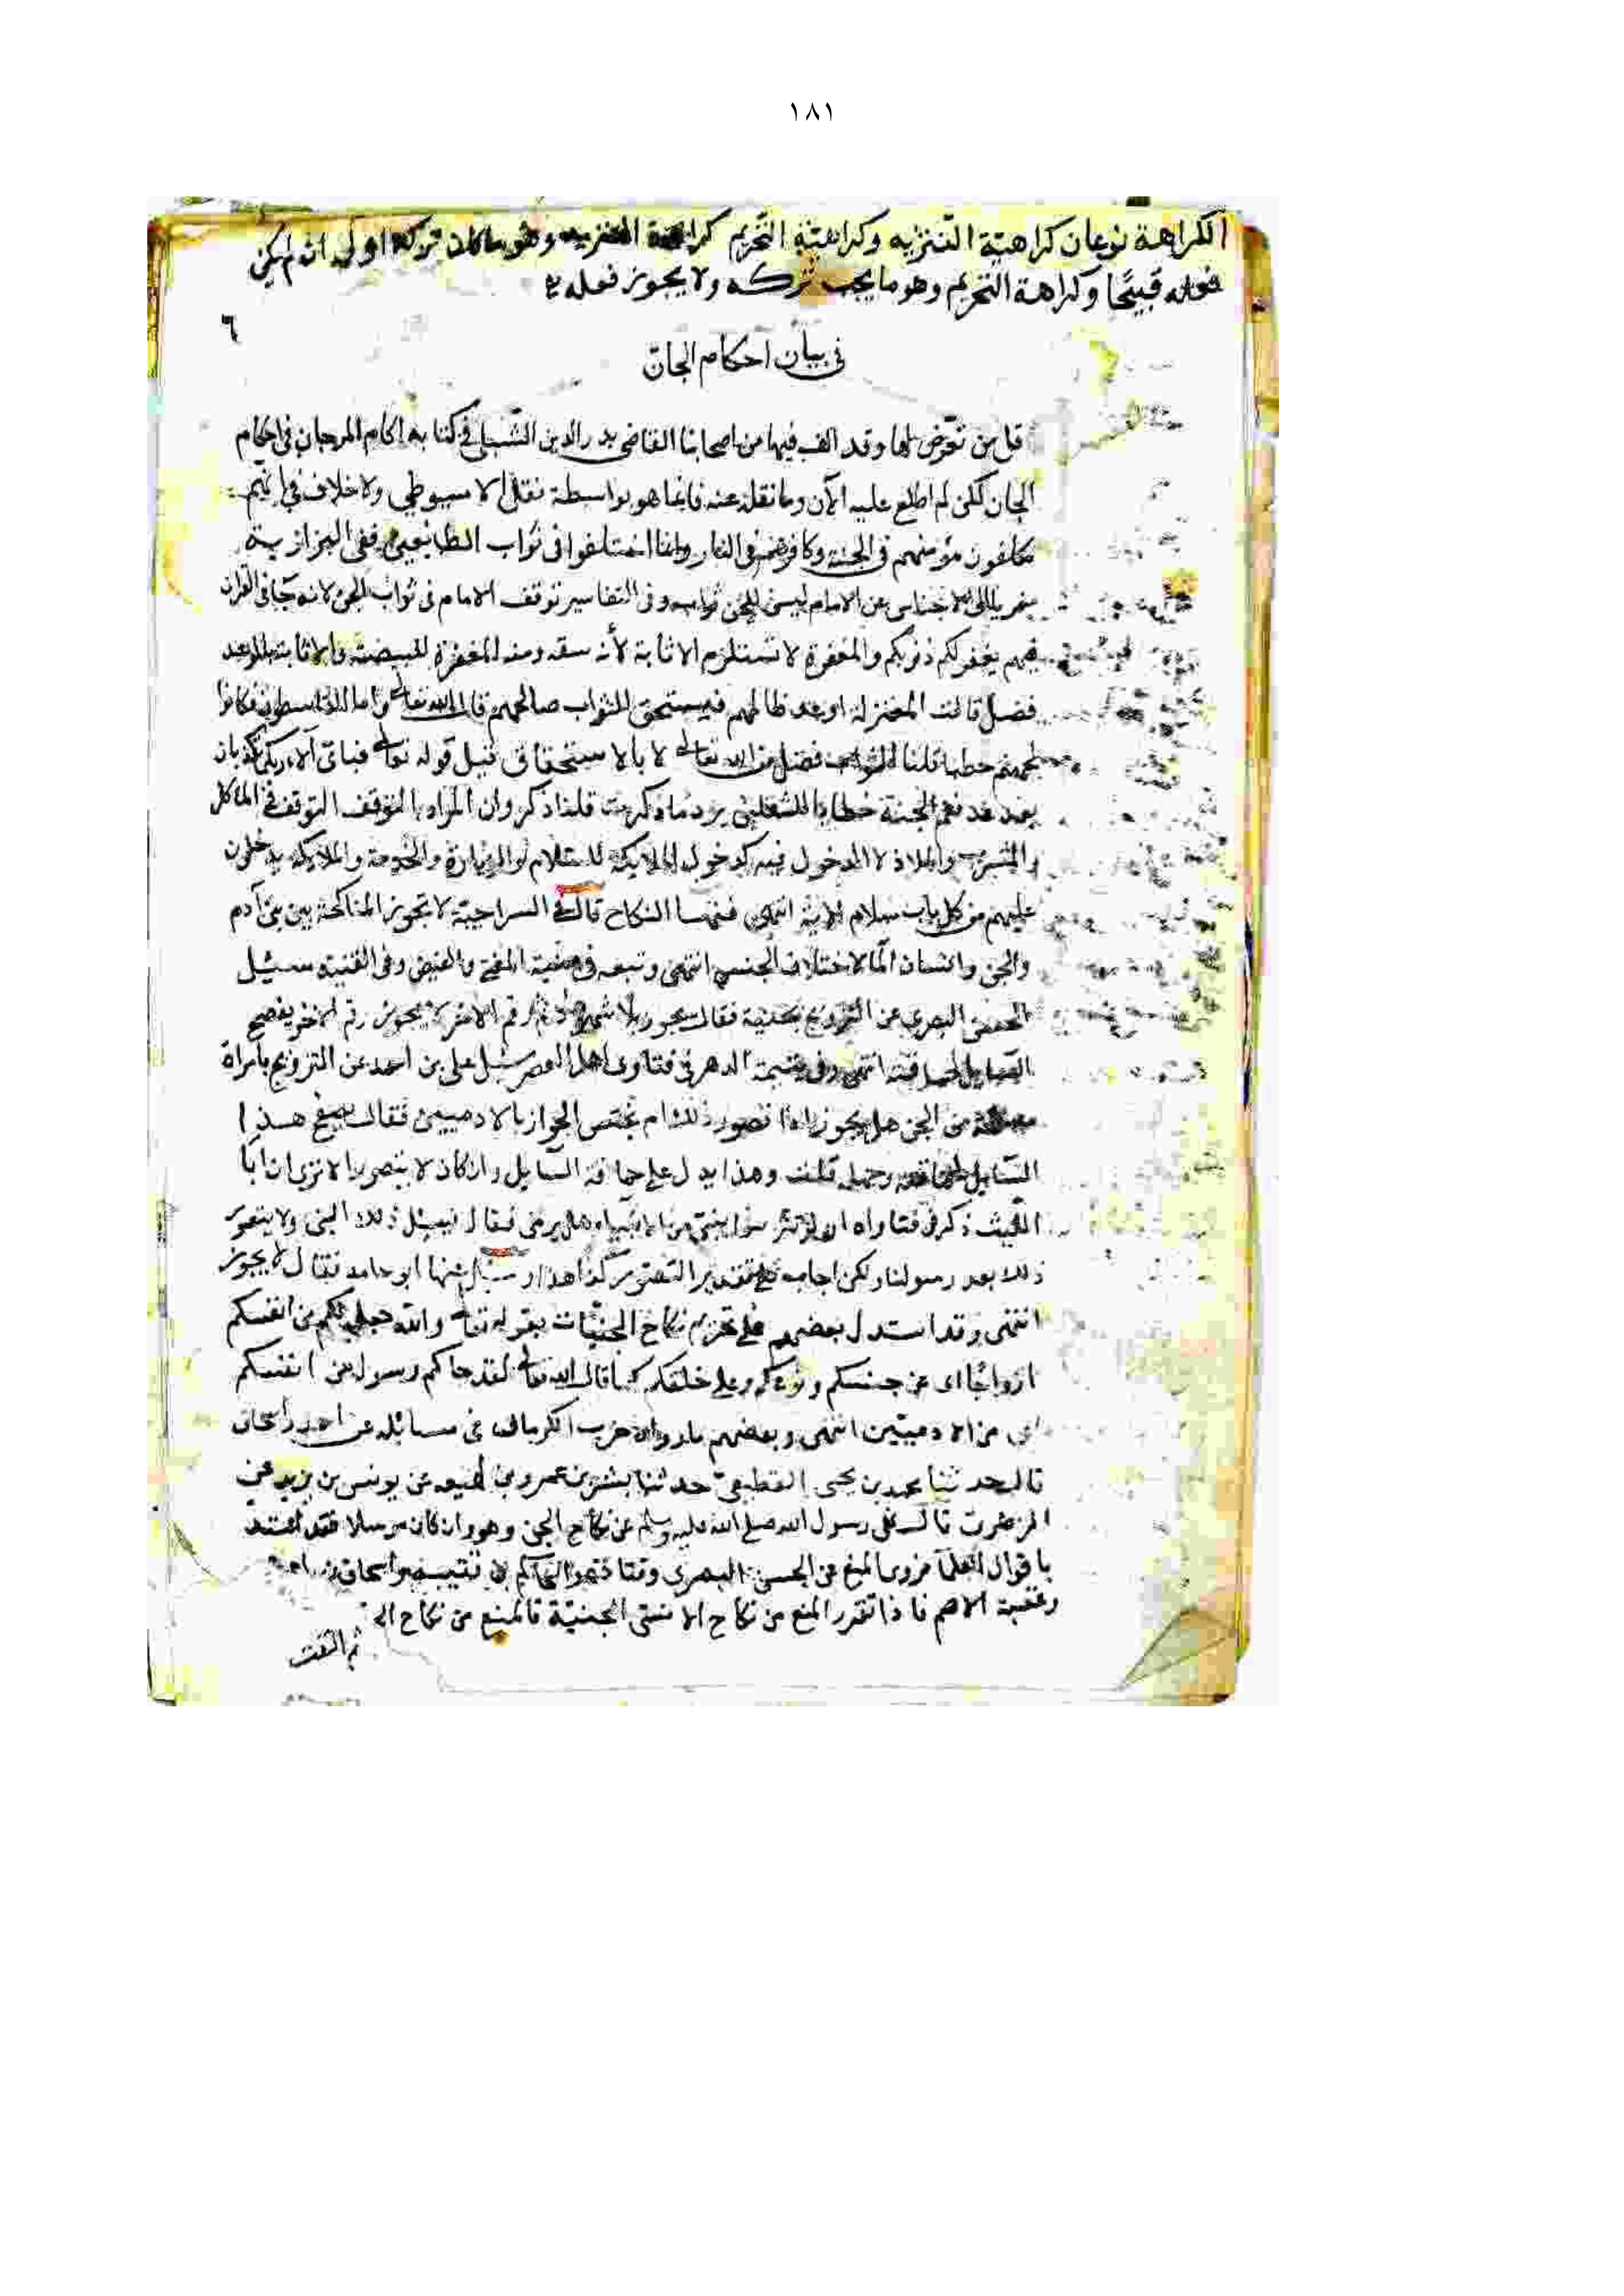 ١٨١
الكراهة نوعان كراهية التنزيه وكراهية التحريم كراهة التنزيه وهو ما كان تركه اولى ان لم يكن
فعله قبيحًا وكراهة التحريم وهو ما يجب تركه ولا يجوز فعله
٦
فى بيان احكام الجانّ
قل من تعرّض لها وقد الف فيها من اصحابنا القاضى بدر الدين الشبلى فى كتابه اكام المرجان فى احكام
الجان لكن لم اطلع عليه الآن وما نقلته عنه فانما هو بواسطة نقل الاسيوطى ولا خلاف فى انهم
مكلفون مؤمنهم فى الجنة وكافرهم فى النار وانما اختلفوا فى ثواب الطائعين ففى البزازية
الاجناس عن الامام ليس للجن ثواب وفى التفاسير توقف الامام فى ثواب الجن لانه جآ فى القرآن
فيهم يغفر لكم ذنوبكم والمغفرة لا تستلزم الاثابة لأنه ستر ومنه المغفرة للبيضة والاثابة بالوعد
فضل قالت المعتزلة اوعد ظالمهم فيستحق الثواب صالحهم قال الله تعالى واما القاسطون فكانوا
لجهنم حطبا قلنا الثواب فضل من الله تعالى لا بالاستحقاق قيل قوله تعالى فباى آلاء ربكما تكذبان
بعد عد نعم الجنة خطابا للثقلين يرد ما ذكرت قلنا ذكروا ان المراد بالتوقف التوقف فى المآكل
والمشرب والملاذ لا الدخول فيه كدخول الملايكة للسلام والزيارة والخدمة والملايكة يدخلون
عليهم من كل باب سلام الآية انتهى فمنها النكاح قال فى السراجية لا تجوز المناكحة بين بنى آدم
والجن وانسان المآ لاختلاف الجنس انتهى وتبعه فى منية المفتى والفيض وفى القنية سئيل
الحسن البصرى عن التزويج بجنية فقال يجوز بلا شهود ثم رقم الاخر لا يجوز رقم الاخر يصفع
السايل لحماقته انتهى وفى يتيمة الدهر فى فتاوى اهل العصر سئل على بن احمد عن التزويج بامراة
من الجن هل يجوز اذا تصور ذلك ام يختص الجواز بالادميين فقال يصفع هذا
السآيل لحماقته وجهله قلت وهذا يدل على حماقة السآيل وان كان لا يتصور الا ترى ان ابا
الليث ذكر فى فتاواه ان لو تترسوا بنبى من الانبيآء هل يرمى فقال يسئل ذلك النبى ولا يتصور
ذلك بعد رسولنا ولكن اجاب على تقدير التصور كذا هذا وسئل عنها ابو حامد فقال لا يجوز
انتهى وقد استدل بعضهم على تحريم نكاح الجنيّات بقوله تعالى والله جعل لكم من انفسكم
ازواجًا اى من جنسكم ونوعكم وعلى خلقكم كما قال الله تعالى لقد جاكم رسول من انفسكم
اى من الادميّين انتهى وبعضهم بما رواه حرب الكرمانى فى مسائله عن احمد واسحاق
قال حدثنا محمد بن يحيى القطيعىّ حدثنا بشر بن عمرو بن لهيعه عن يونس بن يزيد عن
الزهرى قال نهى رسول الله صلى الله عليه وسلم عن نكاح الجن وهو وان كان مرسلا فقد اعتضد
باقوال العلمآ فروى المنع عن الحسن البصرى وقتادة والحاكم بن قتيبة واسحاق
وعقبة الاصم فاذا تقرر المنع من نكاح الانسى الجنيّة فالمنع من نكاح الج
ثم التفت